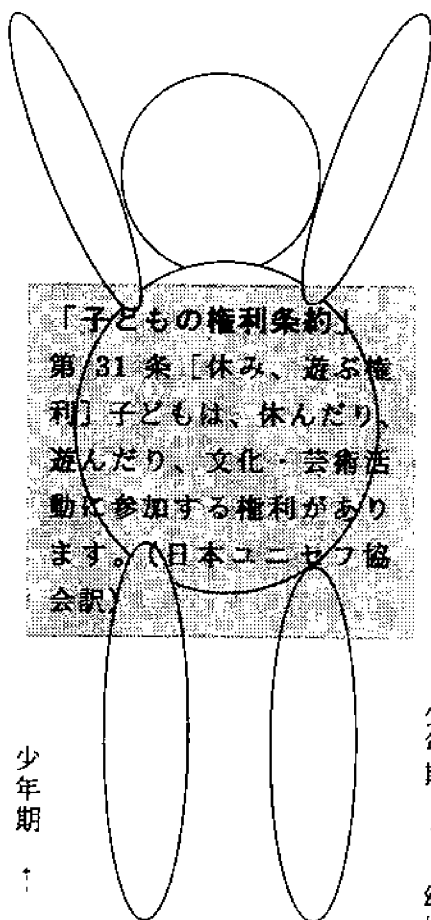 「子どもの権利条約」
第 31 条 [休み、遊ぶ権
利] 子どもは、休んだり、
遊んだり、文化・芸術活
動に参加する権利があり
ます。(日本ユニセフ協
会訳)
少年期